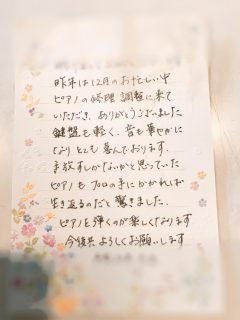 昨年は12月のお忙しい中
ピアノの修理調整に来て
いただき、ありがとうございました
鍵盤も軽く、音も華やかに
なりとても喜んでおります。
手放すしかないかと思っていた
ピアノもプロの手にかかれば
生き返るのだと驚きました。
ピアノを弾くのが楽しくなります
今後共よろしくお願いします